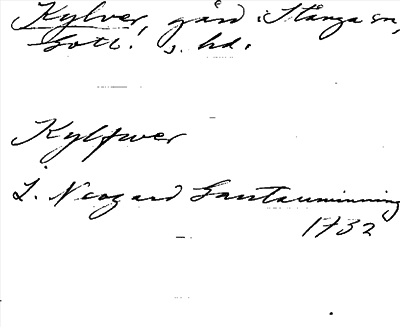 Kylver, gård i Stånga sn,
Gotl. s. hd.
Kylfwer
J. Neogard Gautauminning
1732